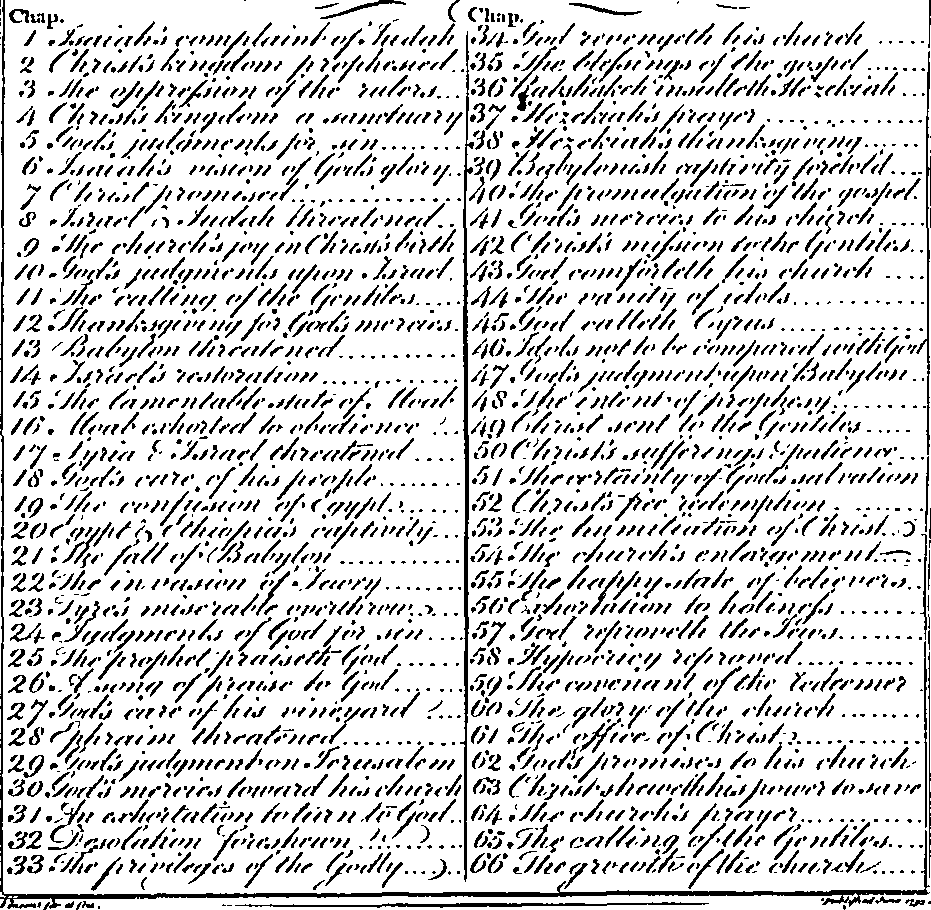 Chap.
1 Isaiah's complaint of Judah
2 Christ's kingdom prophesied
3 The oppression of the rulers
4 Christ's kingdom a sanctuary
5 God's judgments for sin
6 Isaiah's vision of God's glory
7 Christ promised
8 Israel & Judah threatened
9 The church's joy in Christ's birth
10 God's judgments upon Israel
11 The calling of the Gentiles
12 Thanksgiving for God's mercies
13 Babylon threatened
14 Israel's restoration
15 The lamentable state of Moab
16 Moab exhorted to obedience
17 Syria & Israel threatened
18 God's care of his people
19 The confusion of Egypt
20 Egypt & Ethiopia's captivity
21 The fall of Babylon
22 The invasion of Jewry
23 Tyre's miserable overthrow
24 Judgments of God for sin
25 The prophet praiseth God
26 A song of praise to God
27 God's care of his vineyard
28 Ephraim threatened
29 God's judgment on Jerusalem
30 God's mercies toward his church
31 An exhortation to turn to God
32 Desolation foreshewn
33 The privileges of the Godly
Chap.
34 God revengeth his church
35 The blessings of the gospel
36 Rabshakeh insulteth Hezekiah
37 Hezekiah's prayer
38 Hezekiah's thanksgiving
39 Babylonish captivity foretold
40 The promulgation of the gospel
41 God's mercies to his church
42 Christ's mission to the Gentiles
43 God comforteth his church
44 The vanity of idols
45 God calleth Cyrus
46 Idols not to be compared with God
47 God's judgment upon Babylon
48 The intent of prophesy
49 Christ sent to the Gentiles
50 Christ's sufferings & patience
51 The certainty of God's salvation
52 Christ's free redemption
53 The humiliation of Christ
54 The church's enlargement
55 The happy state of believers
56 Exhortation to holiness
57 God reproveth the Jews
58 Hypocricy reproved
59 The covenant of the Redeemer
60 The glory of the church
61 The office of Christ
62 God's promises to his church
63 Christ sheweth his power to save
64 The church's prayer
65 The calling of the Gentiles
66 The growth of the church